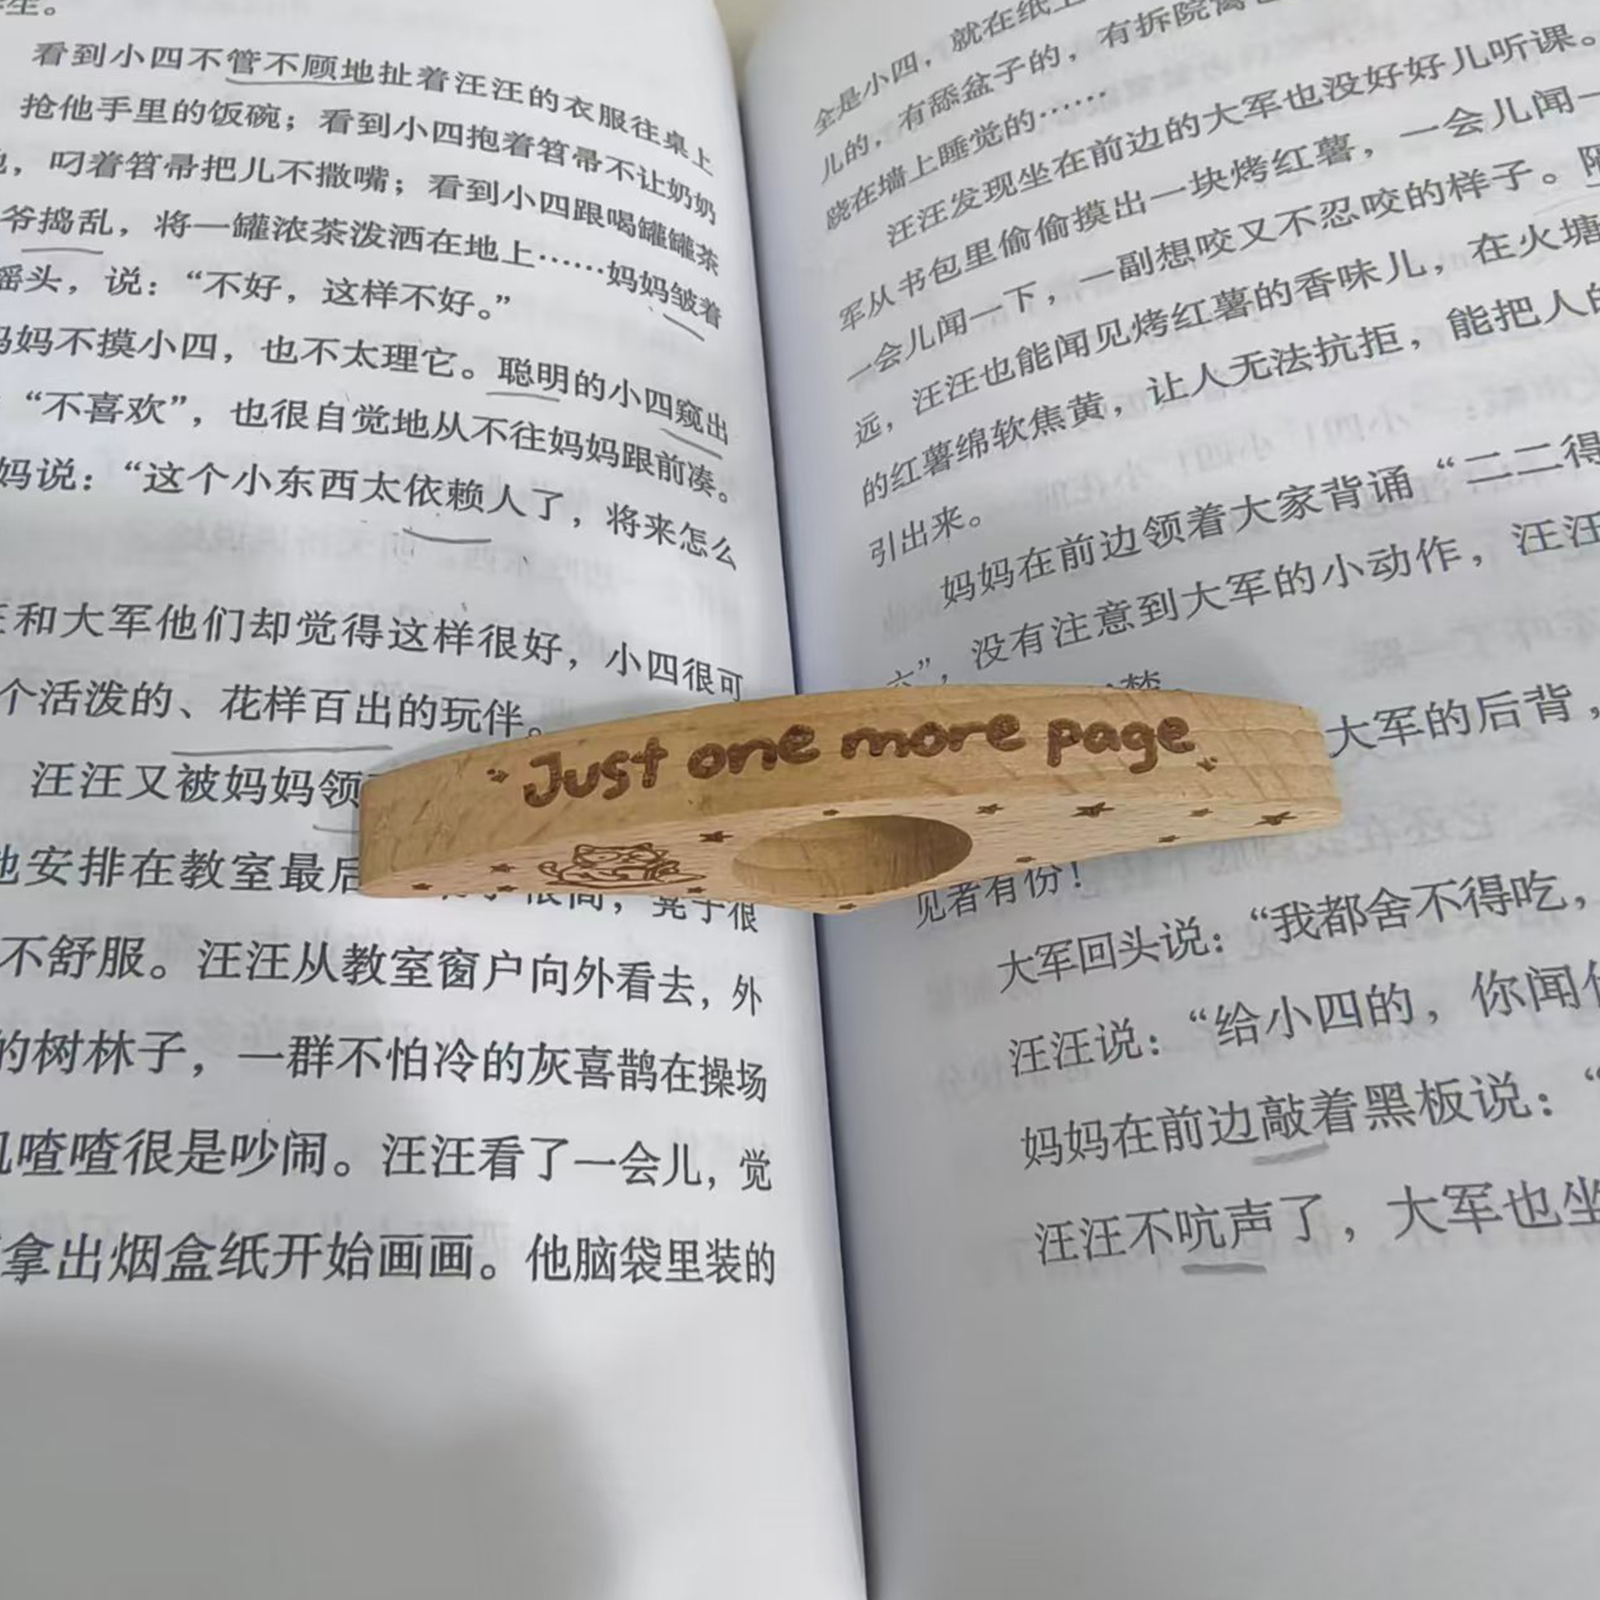 看到小四不管不顾地扯着汪汪的衣服往桌上
抢他手里的饭碗；看到小四抱着笤帚不让奶奶
，叼着笤帚把儿不撒嘴；看到小四跟喝罐罐茶
爷捣乱，将一罐浓茶泼洒在地上……妈妈皱着
摇头，说：“不好，这样不好。”
妈妈不摸小四，也不太理它。聪明的小四窥出
“不喜欢”，也很自觉地从不往妈妈跟前凑。
妈说：“这个小东西太依赖人了，将来怎么
和大军他们却觉得这样很好，小四很可
个活泼的、花样百出的玩伴。
汪汪又被妈妈领
地安排在教室最后
凳子很
不舒服。汪汪从教室窗户向外看去，外
的树林子，一群不怕冷的灰喜鹊在操场
叽喳喳很是吵闹。汪汪看了一会儿，觉
拿出烟盒纸开始画画。他脑袋里装的
全是小四，就在纸上
儿的，有舔盆子的，有拆院
跷在墙上睡觉的……
汪汪发现坐在前边的大军也没好好儿听课。
军从书包里偷偷摸出一块烤红薯，一会儿闻一
一会儿闻一下，一副想咬又不忍咬的样子。
远，汪汪也能闻见烤红薯的香味儿，在火塘
的红薯绵软焦黄，让人无法抗拒，能把人的
引出来。
妈妈在前边领着大家背诵“二二得
六”，没有注意到大军的小动作，汪汪
大军的后背，
Just one more page
见者有份！
大军回头说：“我都舍不得吃，
汪汪说：“给小四的，你闻
妈妈在前边敲着黑板说：“
汪汪不吭声了，大军也坐